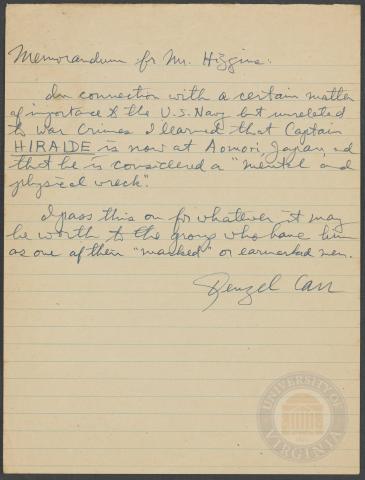 Memorandum for Mr. Higgins:
In connection with a certain matter
of importance to the U.S. Navy but unrelated
to War Crimes I learned that Captain
HIRAIDE is now at Aomori, Japan, and
that he is considered a "mental and
physical wreck".
I pass this on for whatever it may
be worth to the group who have him
as one of their "marked" or earmarked men.
Denzel Carr
UNIVERSITY OF
VIRGINIA